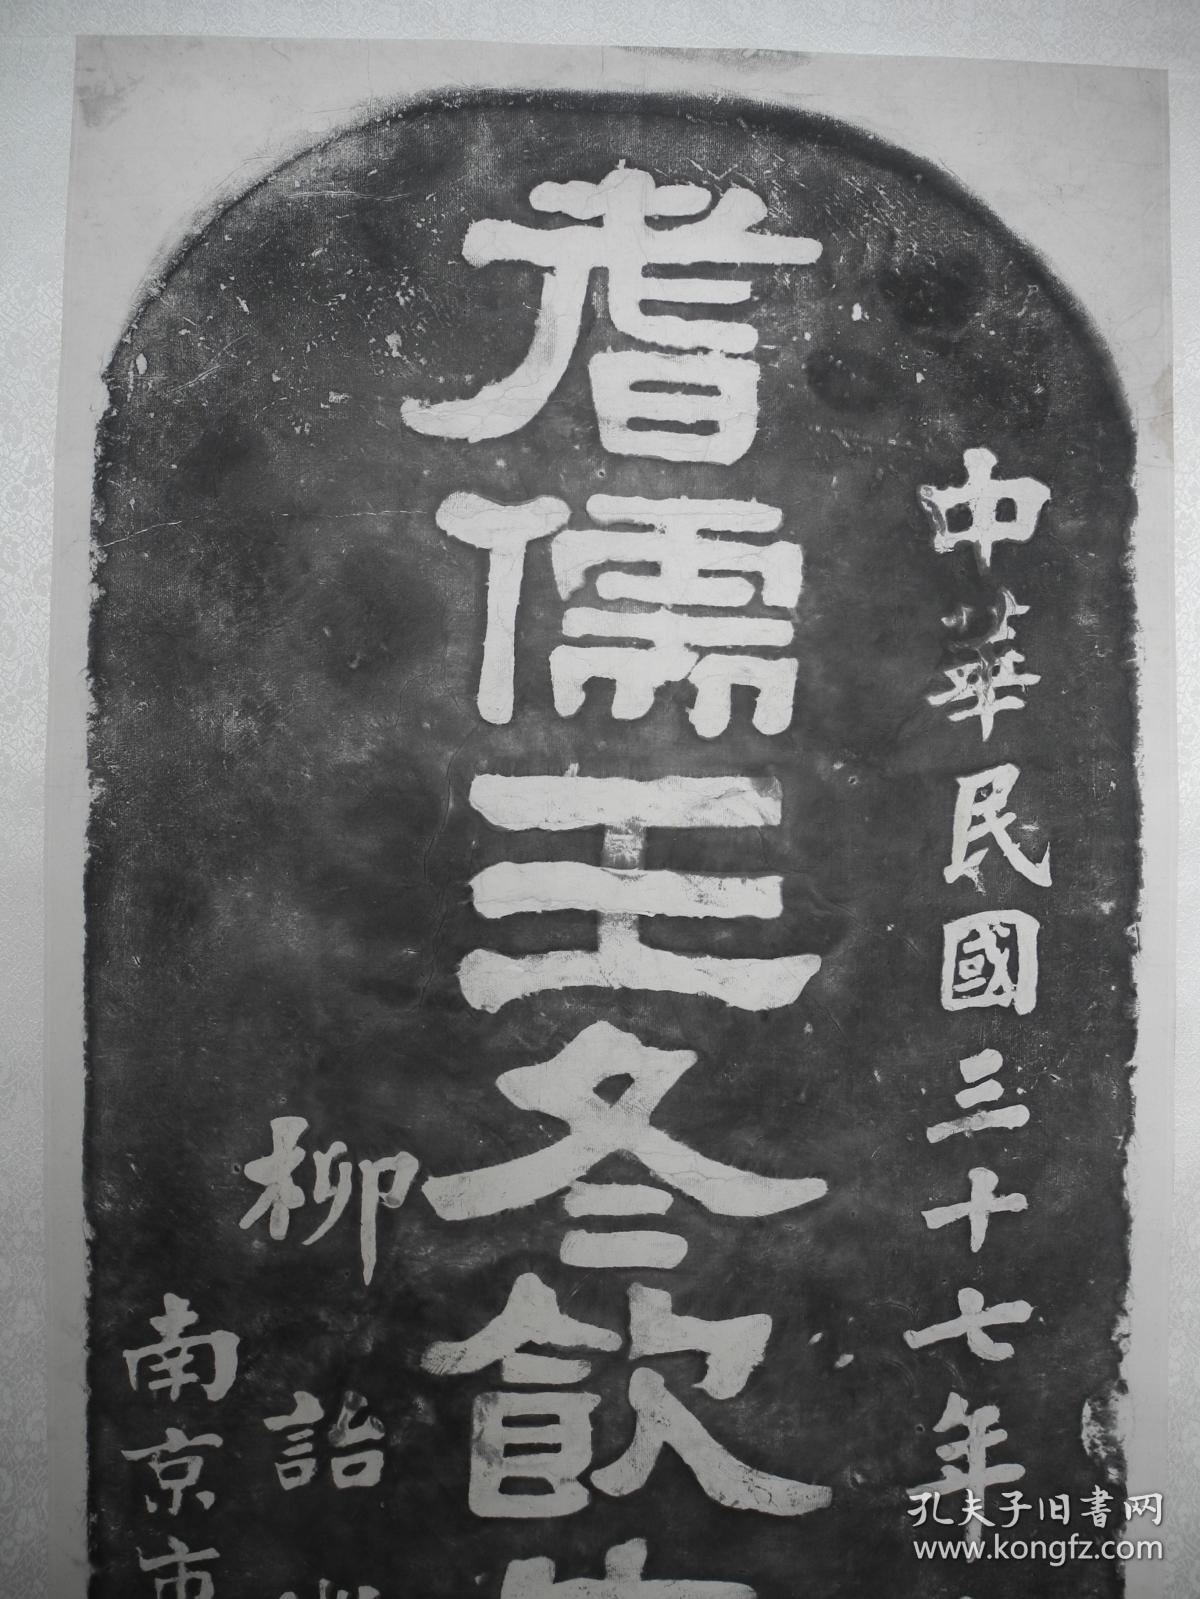 中華民國三十七年
耆儒王冬飲先
柳詒
南京市
孔夫子旧書网
www.kongfz.com